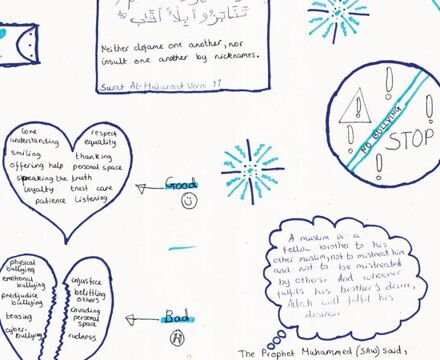 Neither defame one another, nor
insult one another by nicknames.
Surat Al-Hujuraat Verse 11
NO BULLYING
STOP
love
respect
understanding
equality
smiling
thanking
offering help
personal space
speaking the truth
loyalty
trust
care
patience
listening
Good
physical
bullying
emotional
bullying
predjudice
bullying
teasing
cyber-
bullying
injustice
belittling
others
invading
personal
space
rudness
Bad
A muslim is a
fellow brother to his
other muslim, not to mistreat him
and not to be mistreated
by others. And whoever
fulfils his brother's desire,
Allah will fulfil his
desires.
The Prophet Muhammed (SAW) said,